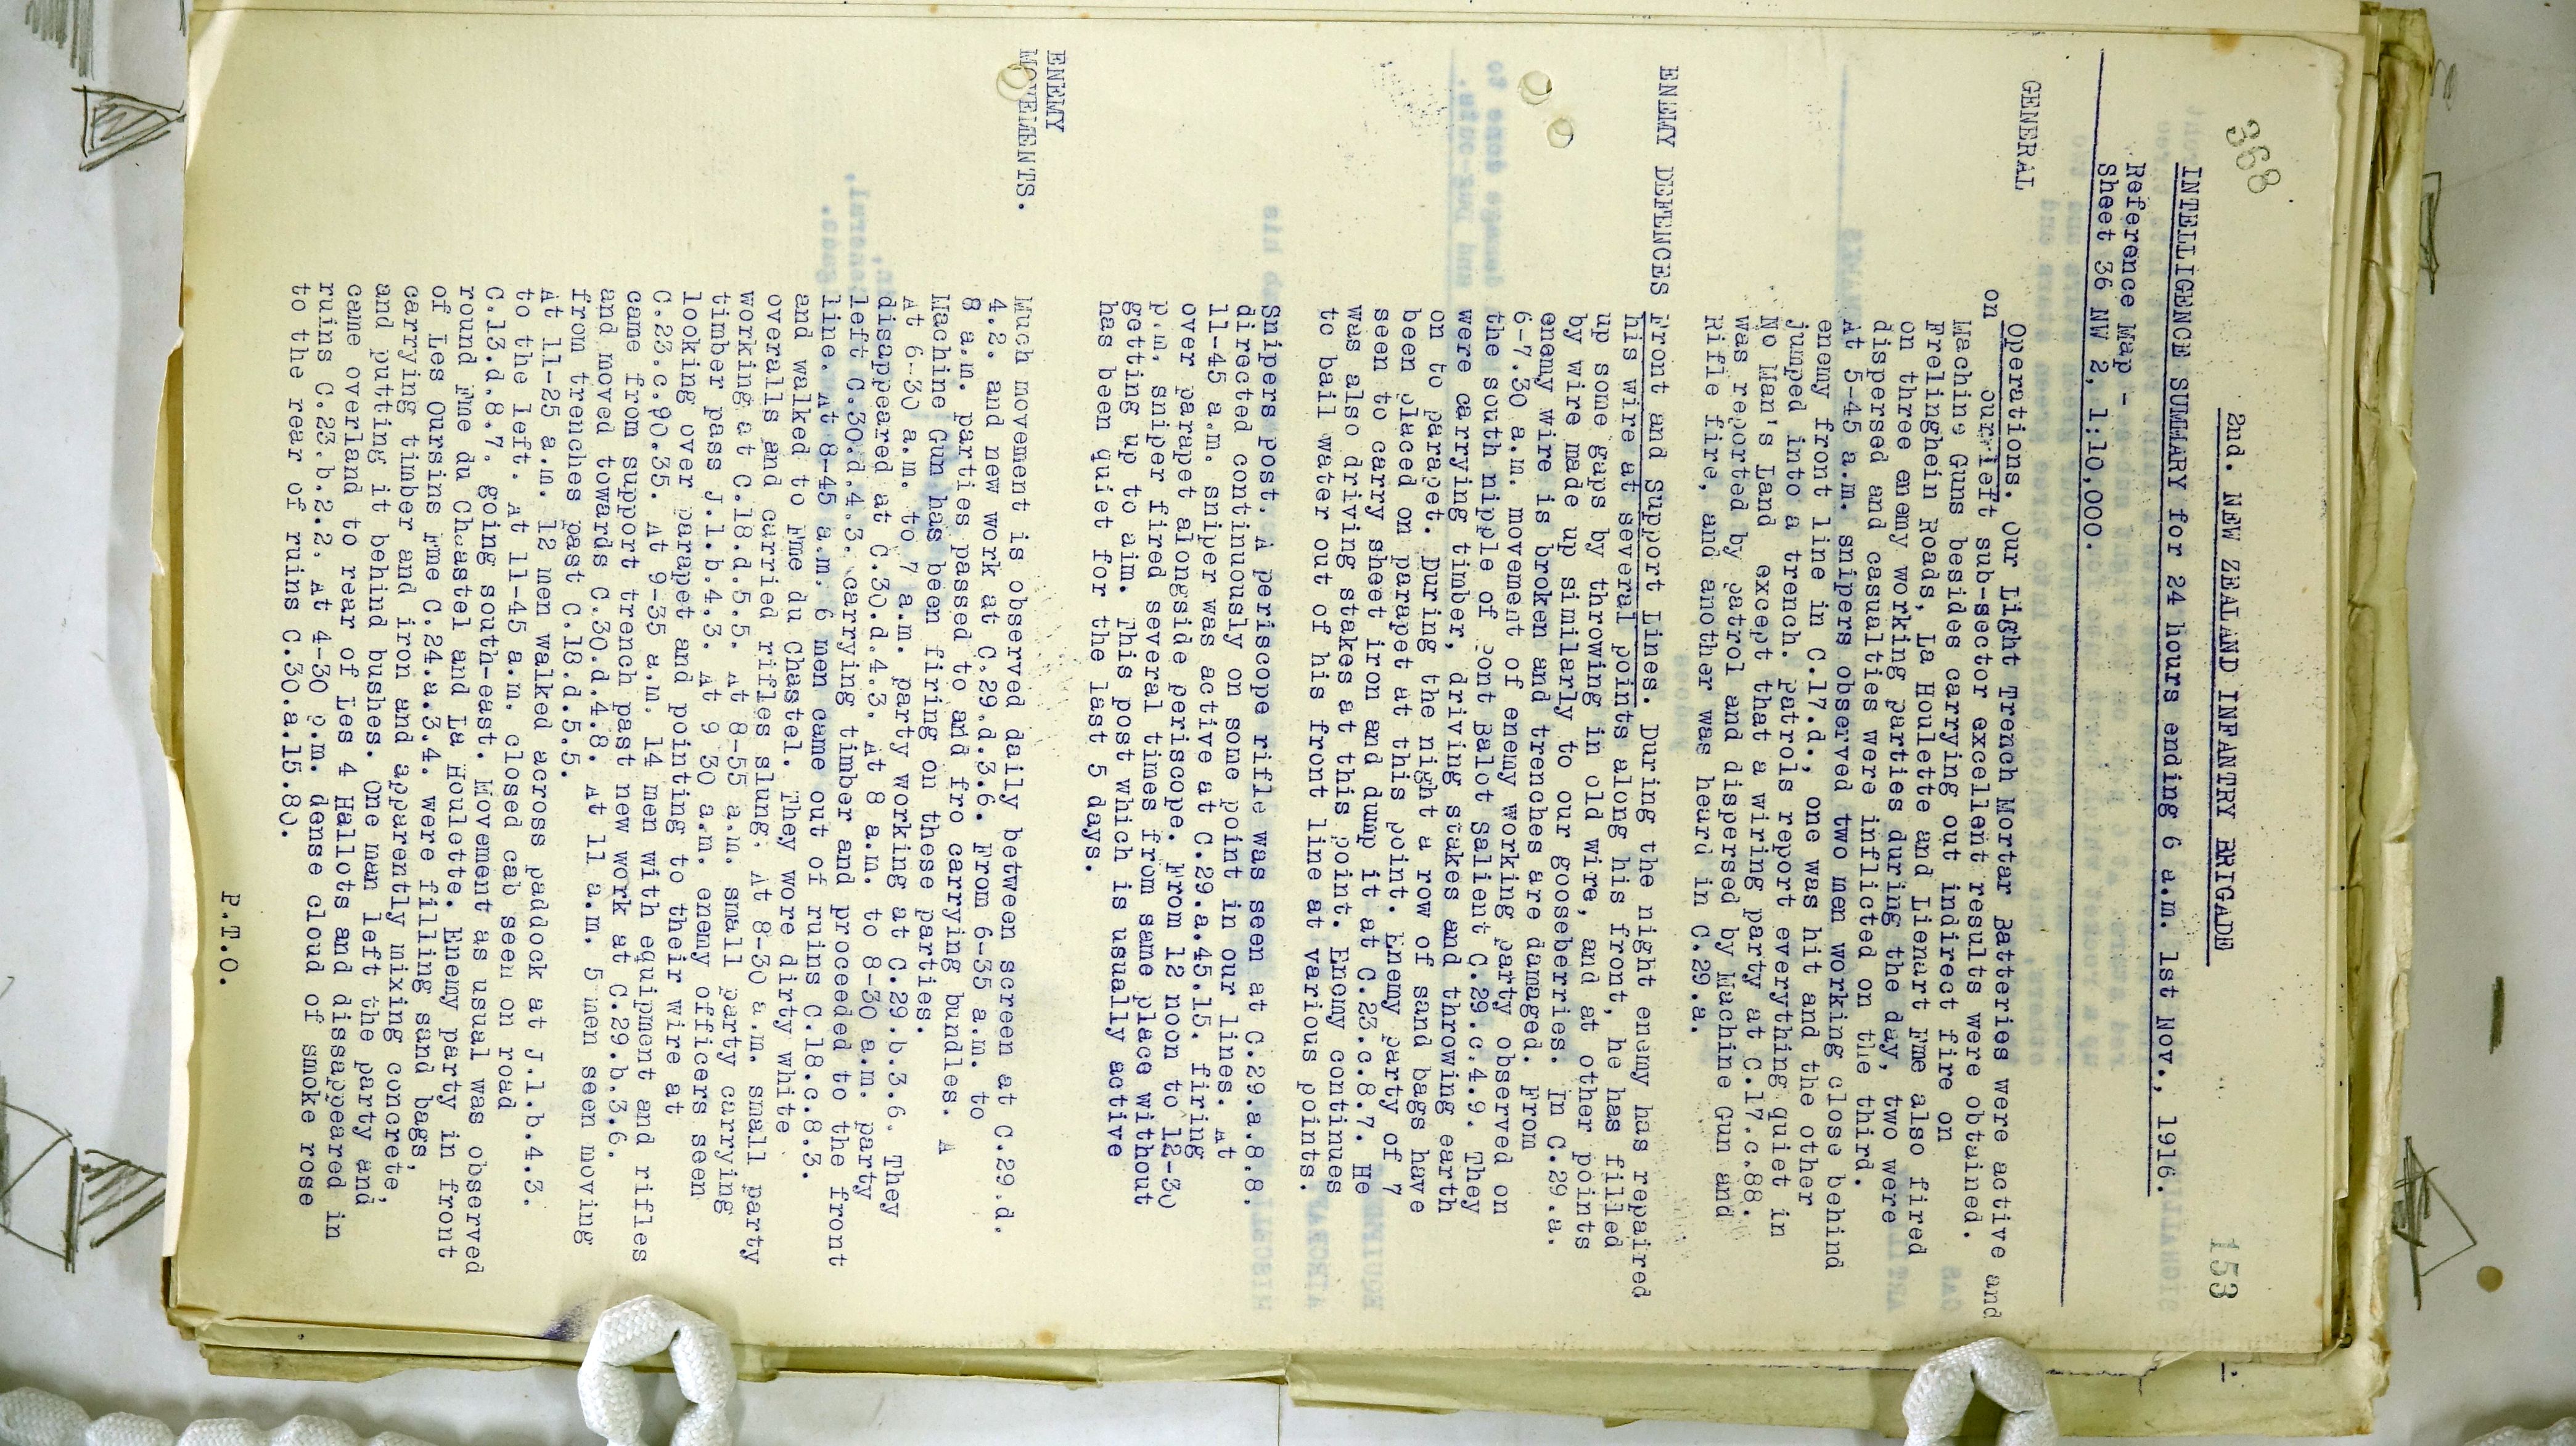 368
153
2nd. NEW ZEALAND INFANTRY BRIGADE
INTELLIGENCE SUMMARY for 24 hours ending 6 a.m. 1st Nov., 1916.
Reference Map -
Sheet 36 NW 2, 1:10,000.
GENERAL
Operations. Our Light Trench Mortar Batteries were active and
on our left sub-sector excellent results were obtained.
Machine Guns besides carrying out indirect fire on
Frelinghein Roads, La Houlette and Lienart Fme also fired
on three enemy working parties during the day, two were
dispersed and casualties were inflicted on the third.
At 5-45 a.m. snipers observed two men working close behind
enemy front line in C.17.d., one was hit and the other
jumped into a trench. Patrols report everything quiet in
No Man's Land except that a wiring party at C.17.c.88.
was reported by patrol and dispersed by Machine Gun and
Rifle fire, and another was heard in C.29.a.
ENEMY DEFENCES Front and Support Lines. During the night enemy has repaired
his wire at several points along his front, he has filled
up some gaps by throwing in old wire, and at other points
by wire made up similarly to our gooseberries. In C.29.a.
enemy wire is broken and trenches are damaged. From
6-7.30 a.m. movement of enemy working party observed on
the south nipple of Pont Ballot Salient C.29.c.4.9. They
were carrying timber, driving stakes and throwing earth
on to parapet. During the night a row of sand bags have
been placed on parapet at this point. Enemy party of 7
seen to carry sheet iron and dump it at C.23.c.8.7. He
was also driving stakes at this point. Enemy continues
to bail water out of his front line at various points.
Snipers post. A periscope rifle was seen at C.29.a.8.8.
directed continuously on some point in our lines. At
11-45 a.m. sniper was active at C.29.a.45.15. firing
over parapet alongside periscope. From 12 noon to 12-30
p.m. sniper fired several times from same place without
getting up to aim. This post which is usually active
has been quiet for the last 5 days.
ENEMY
MOVEMENTS.
Much movement is observed daily between screen at C.29.d.
4.2. and new work at C.29.d.3.6. From 6-35 a.m. to
8 a.m. parties passed to and fro carrying bundles. A
Machine Gun has been firing on these parties.
At 6-30 a.m. to 7 a.m. party working at C.29.b.3.6. They
disappeared at C.30.d.4.3. At 8 a.m. to 8-30 a.m. party
left C.30.d.4.3. carrying timber and proceeded to the front
line. At 8-45 a.m. 6 men came out of ruins C.18.c.8.3.
and walked to Fme du Chastel. They wore dirty white
overalls and carried rifles slung. At 8-30 a.m. small party
working at C.18.d.5.5. At 8-55 a.m. small party carrying
timber pass J.1.b.4.3. At 9 30 a.m. enemy officers seen
looking over parapet and pointing to their wire at
C.23.c.90.35. At 9-35 a.m. 14 men with equipment and rifles
came from support trench past new work at C.29.b.3.6.
and moved towards C.30.d.4.8. At 11 a.m. 5 men seen moving
from trenches past C.18.d.5.5.
At 11-25 a.m. 12 men walked across paddock at J.1.b.4.3.
to the left. At 11-45 a.m. closed cab seen on road
C.13.d.8.7. going south-east. Movement as usual was observed
round Fme du Chastel and La Houlette. Enemy party in front
of Les Oursins Fme C.24.a.3.4. were filling sand bags,
carrying timber and iron and apparently mixing concrete,
and putting it behind bushes. One man left the party and
came overland to rear of Les 4 Hallots and dissappeared in
ruins C.23.b.2.2. At 4-30 p.m. dense cloud of smoke rose
to the rear of ruins C.30.a.15.80.
P.T.O.